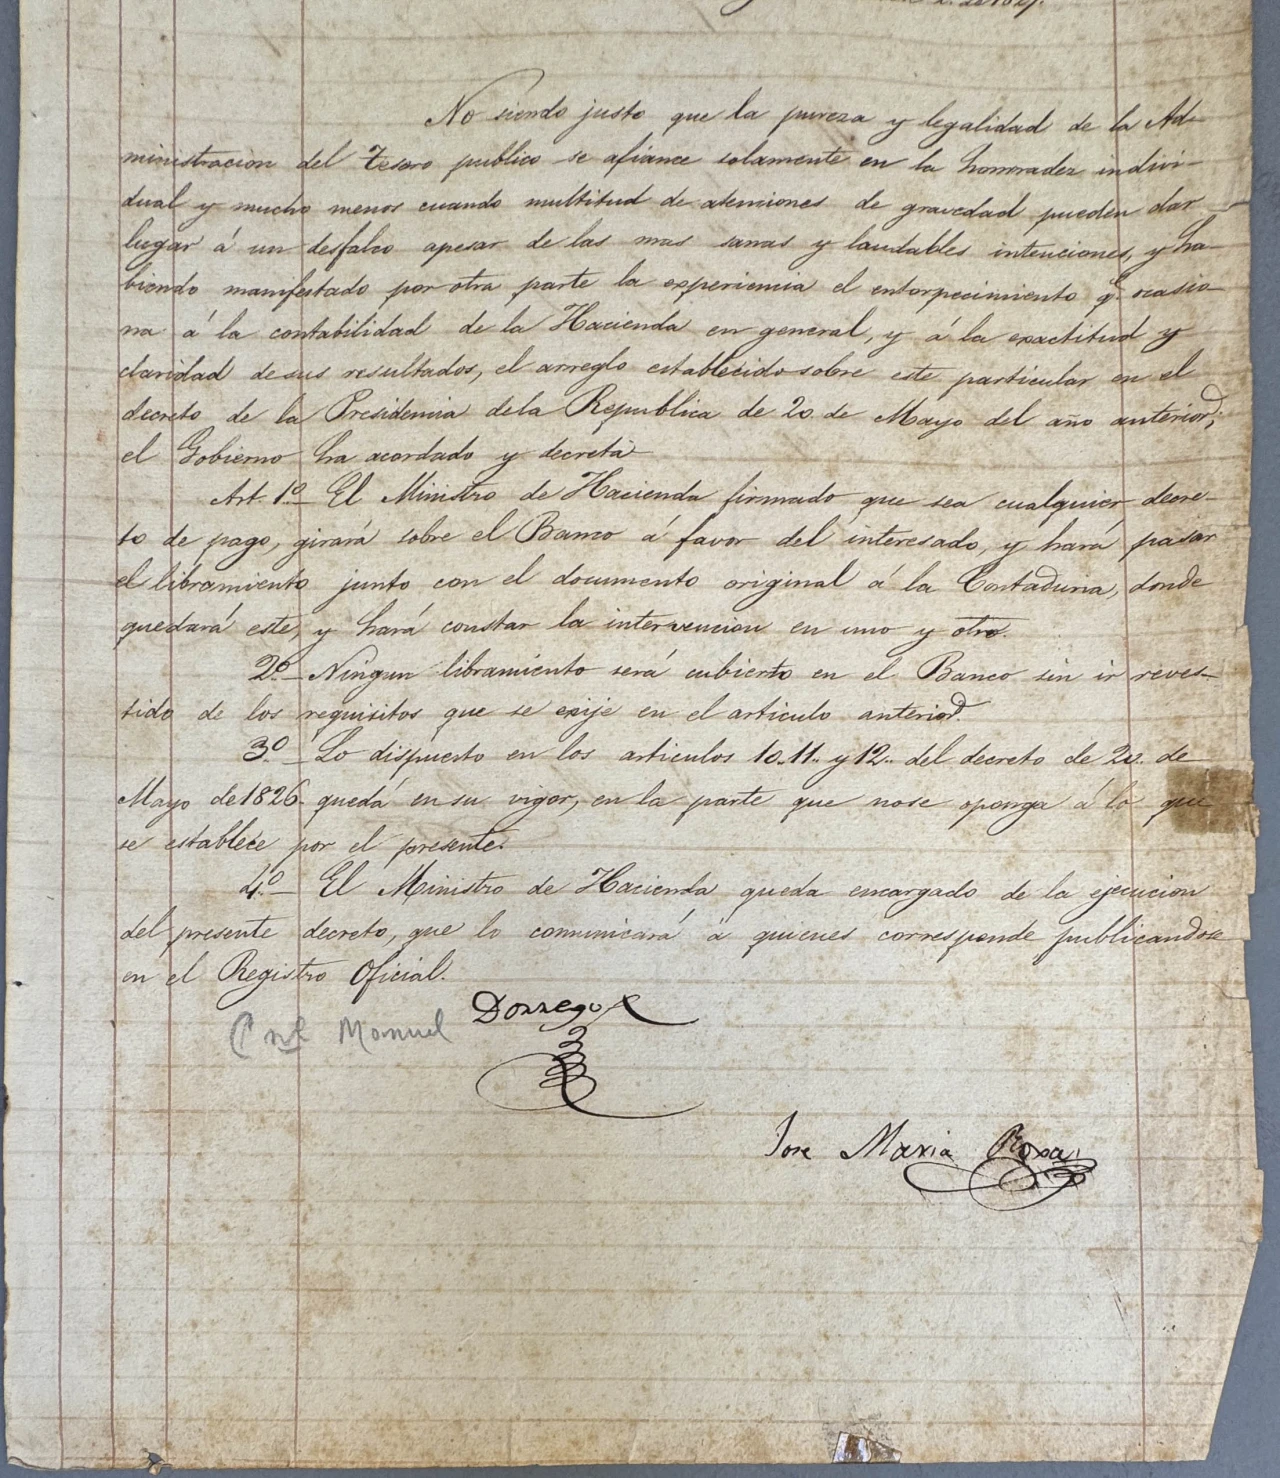 de 1827.
No siendo justo que la pureza y legalidad de la Ad-
ministracion del Tesoro publico se afiance solamente en la honrradez indivi-
dual y mucho menos cuando multitud de atenciones de gravedad pueden dar
lugar á un desfalco apesar de las mas sanas y laudables intenciones, y ha-
biendo manifestado por otra parte la experiencia el entorpecimiento q.e ocasio-
na á la contabilidad de la Hacienda en general, y á la exactitud y
claridad de sus resultados, el arreglo establecido sobre este particular en el
decreto de la Presidencia dela Republica de 20 de Mayo del año anterior;
el Gobierno ha acordado y decreta
Art. 1º El Ministro de Hacienda firmado que sea cualquier decre-
to de pago, girará sobre el Banco á favor del interesado, y hará pasar
el libramiento junto con el documento original á la Contaduria, donde
quedará este, y hará constar la intervencion en uno y otro.
2º Ningun libramiento será cubierto en el Banco sin ir reves-
tido de los requisitos que se exije en el articulo anterior.
3º Lo dispuesto en los articulos 10. 11. y 12. del decreto de 20. de
Mayo de 1826. quedá en su vigor, en la parte que nose oponga á lo que
se establece por el presente.
4º El Ministro de Hacienda queda encargado de la ejecucion
del presente decreto, que lo comunicará á quienes corresponde publicandose
en el Registro Oficial.
Dorrego
Cnel Manuel
Jose Maria Roxas